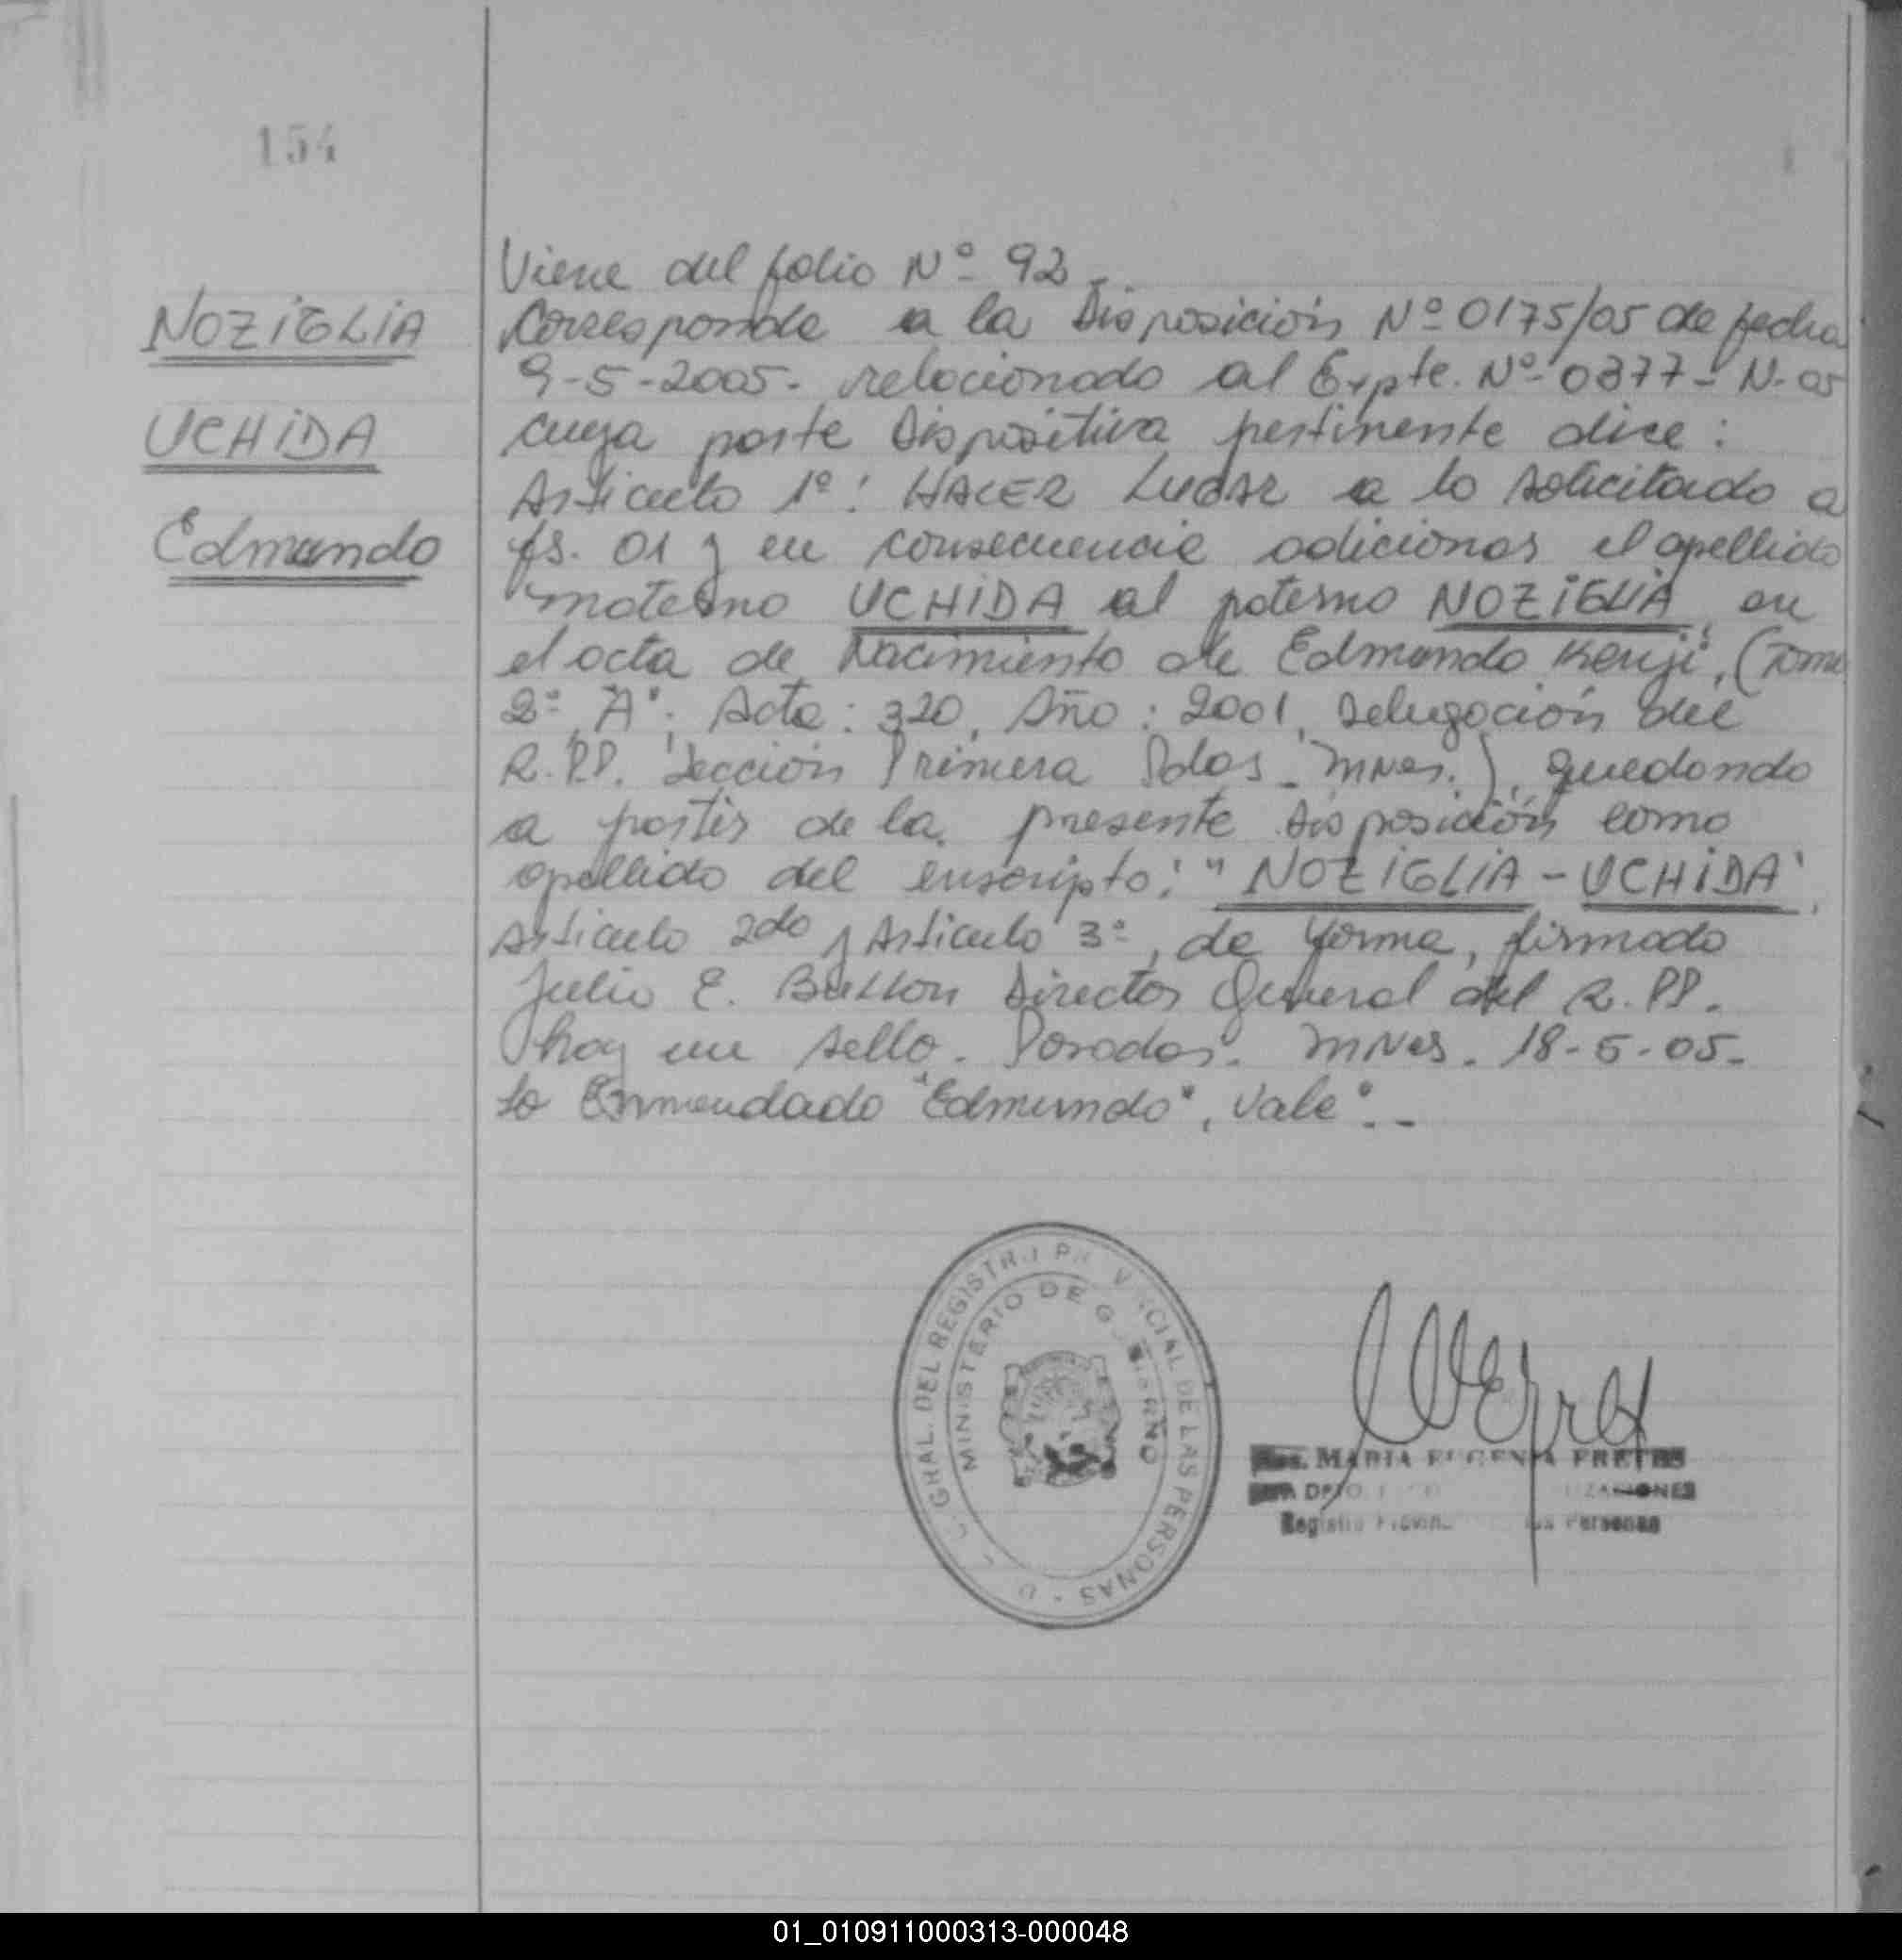 154
NOZIGLIA
UCHIDA
Edmundo
Viene del folio Nº 92.-
Corresponde a la Disposición Nº 0175/05 de fecha
9-5-2005- relacionado al Expte. Nº 0377-N-05
cuya parte Dispositiva pertinente dice:
Artículo 1º: HACER LUGAR a lo solicitado a
fs. 01 y en consecuencia adicionar el apellido
materno UCHIDA al paterno NOZIGLIA, en
el acta de Nacimiento de Edmundo Kenji, (Tomo
2º "A", Acta: 320, Año: 2001, Delegación del
R.P.P. Sección Primera Pdas. Mnes.), quedando
a partir de la presente Disposición como
apellido del inscripto: "NOZIGLIA-UCHIDA".
Artículo 2do y Artículo 3º, de forma, firmado
Julio E. Director General del R.P.P.
hay un sello. Posadas. Mnes. 18-5-05-
Lo Enmendado "Edmundo", Vale".-
GRAL. DEL REGISTRO PROVINCIAL DE LAS PERSONAS
MINISTERIO DE GOBIERNO
MARIA EUGENIA FRETES
Registro Provin. Las Personas
01_010911000313-000048